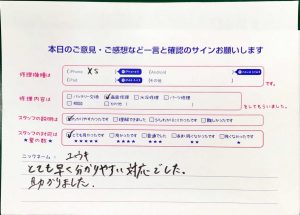 本日のご意見・ご感想など一言と確認のサインお願いします
修理機種は iPhone XS Android
iPad その他 です。
修理内容は バッテリー交換 ✓画面修理 水没修理 パーツ修理
をしてもらいました。
スタッフの説明は ✓わかりやすかったです 理解できました 少しわかりにくかったです 難しかったです
スタッフの対応は ✓とても良かったです 良かったです 普通でした あまり良くなかったです 良くなかったです
★星の数★ ★★★★★ ★★★★ ★★★ ★★ ★
ニックネーム: ユウキ
とても早く分かりやすい対応でした。
助かりました。